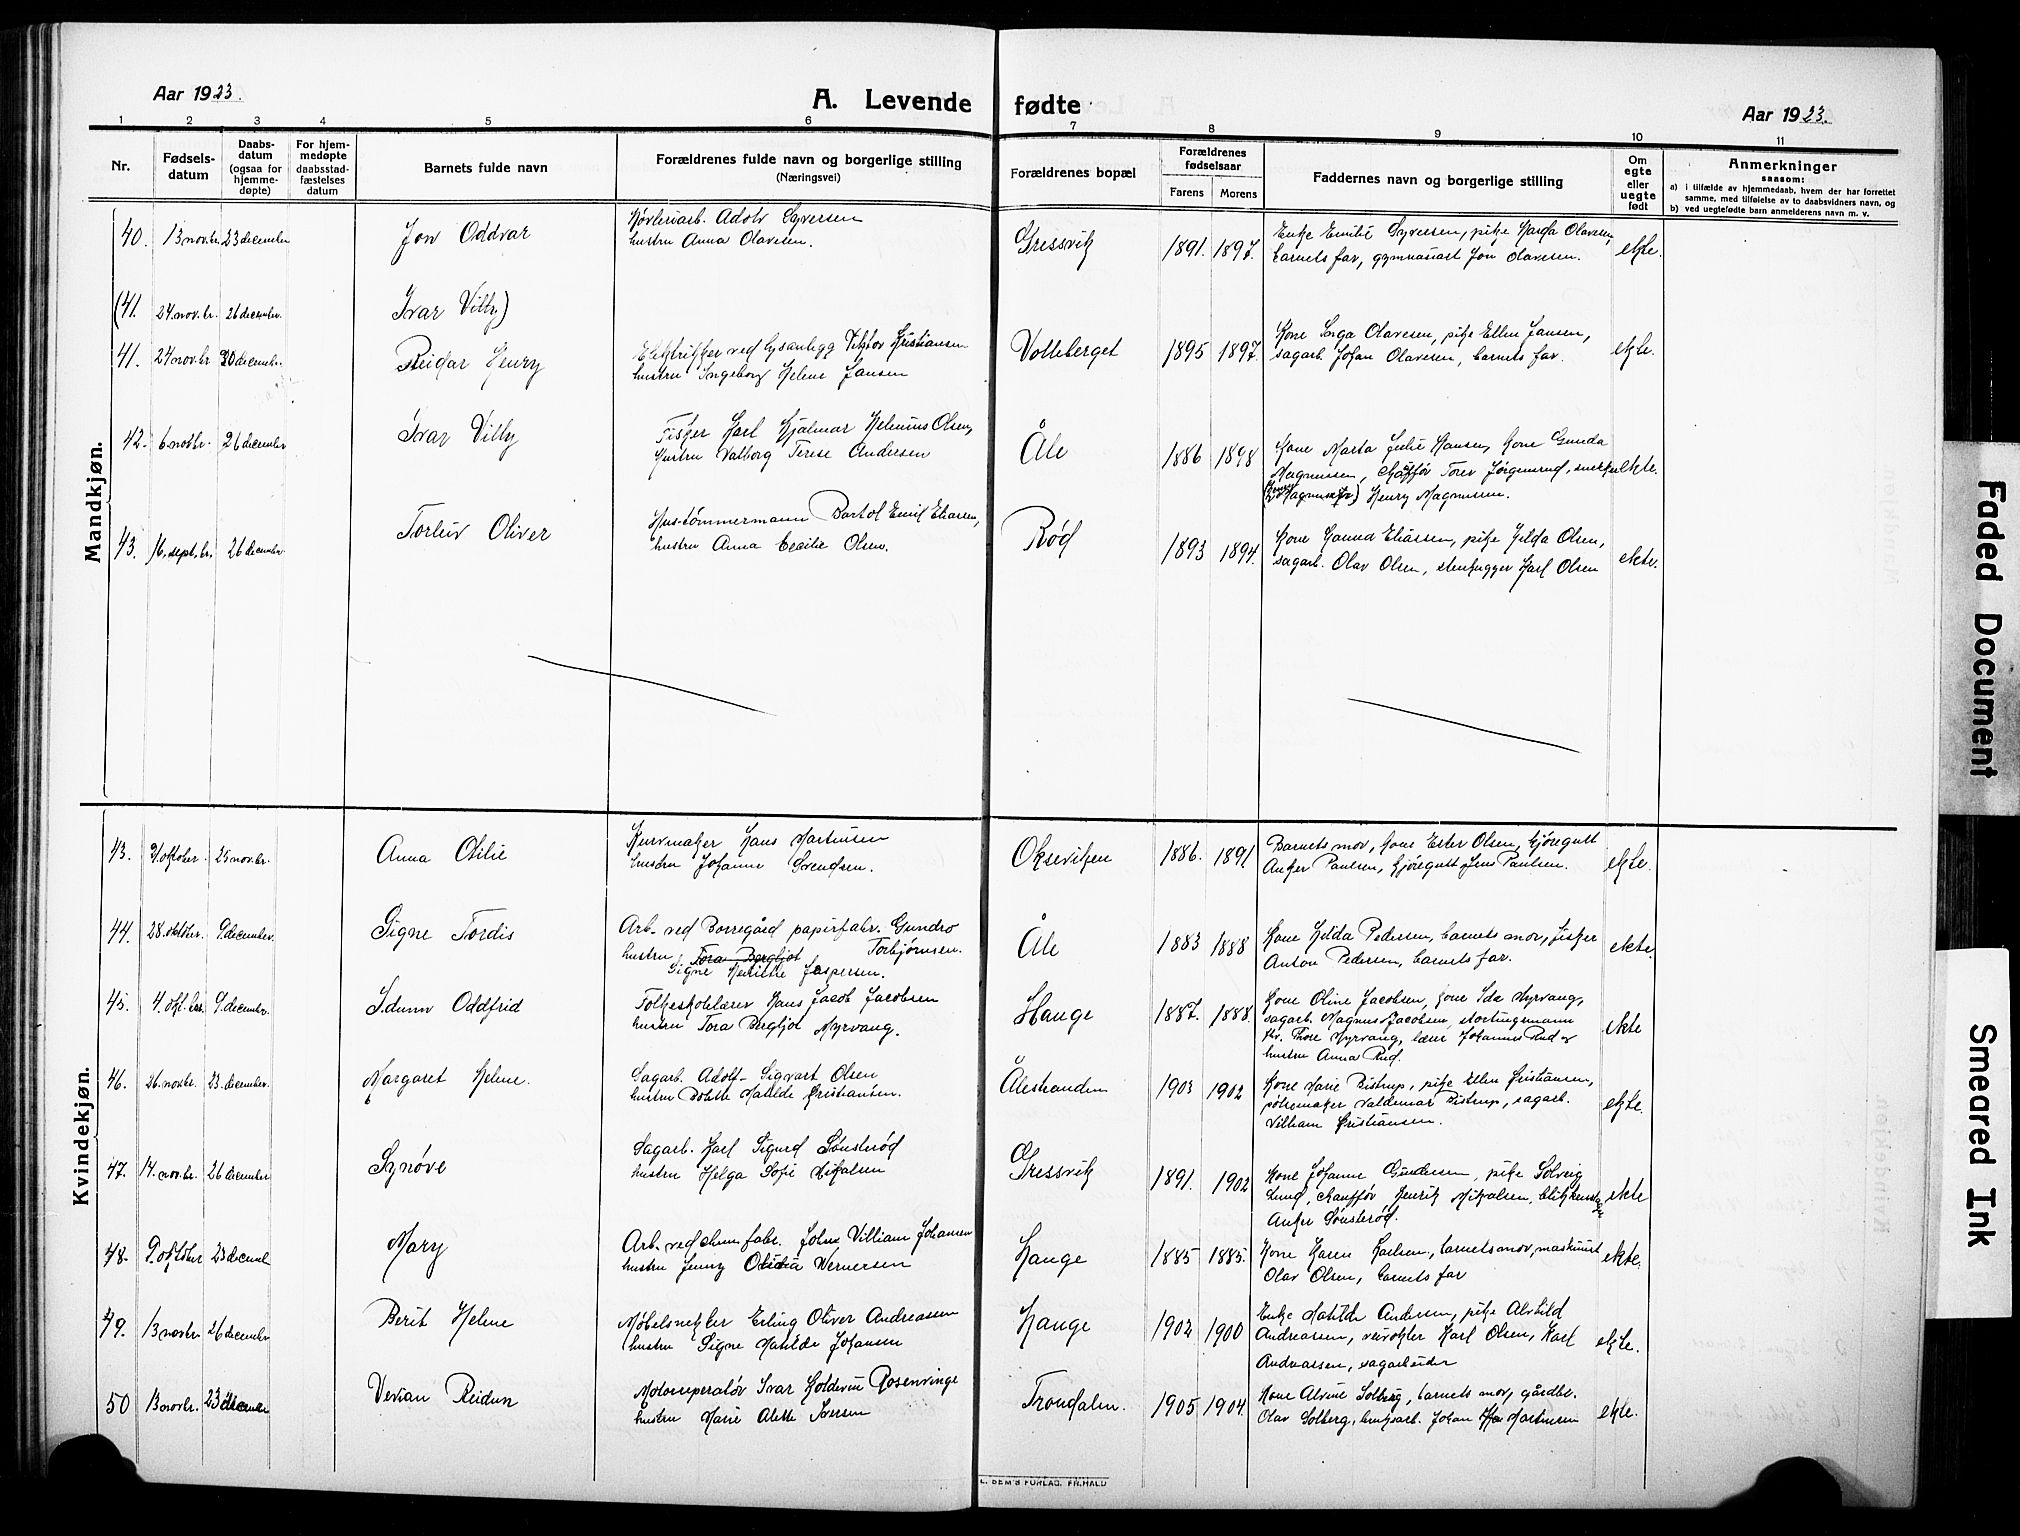 Aar 1923.
A. Levende fødte
Aar 1923.
1 2 3 4 5 6 7 8 9 10 11
Nr.
Fødsels-
datum
Daabs-
datum
(ogsaa for
hjemme-
døpte)
For hjem-
medøpte
daabsstad-
fæstelses
datum
Barnets fulde navn
Forældrenes fulde navn og borgerlige stilling
(Næringsvei)
Forældrenes bopæl
Forældrenes
fødselsaar
Farens Morens
Faddernes navn og borgerlige stilling
Om
egte
eller
uegte
født
Anmerkninger
saasom:
a) i tilfælde av hjemmedaab, hvem der har forrettet
samme, med tilføielse av to daabsvidners navn, og
b) ved uegtefødte barn anmelderens navn m. v.
Mandkjøn.
40. 13 novbr. 23 december Jon Oddvar
Høvleriarb. Adolv Syversen
hustru Anna Olavesen.
Gressvik 1891. 1897.
Enke Emilie Syversen, pike Harda Olavesen,
barnets far, gymnasiast Jon Olavesen.
ekte.
(41. 24. nov.br. 26 decembr. Ivar Villy)
41. 24 nov.br 30 decembr. Reidar Henry
Elektriker ved lysanlegg Viktor Kristiansen
hustru Ingeborg Helene Jansen
Volleberget 1895 1897.
Kone Inga Olavesen, pike Ellen Jansen,
sagarb. Johan Olavesen, barnets far.
ekte.
42. 6 novbr. 26 december Ivar Villy
Fisker Karl Hjalmar Helenius Olsen,
hustru Valborg Terese Andersen
Åle 1886 1898
Kone Marta Julie Hansen, kone Gunda
Magnussen, chaffør Torev Jørgensrud, snekker ekte.
Henry Magnussen.
43. 16. sept.br. 26 decembr. Torleiv Oliver
Hus-tømmermann Bartol Emil Eliassen,
hustru Anna Cecilie Olsen.
Rød 1893 1894.
Kone Hanna Eliassen, pike Hilda Olsen,
sagarb. Olav Olsen, stenhugger Karl Olsen
ekte.
Kvindekjøn.
43. 21. oktober. 25 nov.br. Anna Otilie
Kurvmaker Hans Martinsen
hustru Johanne Svendsen.
Okseviken 1886. 1891
Barnets mor, kone Ester Olsen, kjøregutt
Anker Paulsen, kjøregutt Jens Paulsen.
ekte.
44. 28. oktobr. 9. december. Signe Tordis
Arb. ved Borregård papirfabr. Gundro
hustru Tora Bergljot Torbjørnsen.
Signe Jespersen.
Åle 1883 1888
Kone Hilda Pedersen, barnets mor, fisker
Anton Pedersen, barnets far.
ekte.
45. 4. okt.ber. 9. decembr. Idunn Oddfrid
Folkeskolelærer Hans Jacob Jacobsen
hustru Tora Bergljot Myrvang.
Hauge 1887. 1888.
Kone Oline Jacobsen, kone Ida Myrvang,
sagarb. Magnus Jacobsen, stortingsmann
Thore Myrvang, lærer Johannes Rud og
hustru Anna Rud.
ekte
46. 26. nov.br. 23. december. Margaret Helene.
Sagarb. Adolf Sigvart Olsen
hustru Bolette Matilde Kristiansen.
Ålestranden 1903 1902
Kone Marie Bistrup, pike Ellen Kristiansen,
pølsemaker Valdemar Bistrup, sagarb.
Villiam Kristiansen.
ekte.
47. 14. nov.br. 26 december Synøve
Sagarb. Karl Sigurd Sønsterød
hustru Helga Sofie Mikalsen
Gressvik 1891. 1902
Kone Johanne Gundersen, pike Solveig
Lund, chauffør Henrik Mikalsen, blikkenslager
Anker Sønsterød.
ekte
48. 9. oktober 23 decembr Mary
Arb. ved chem. fabr. Johns Villiam Johansen
hustru Jenny Olidia Wernersen
Hauge 1885 1885.
Kone Karen Karlsen, barnets mor, maskinist
Olav Olsen, barnets far
ekte.
49. 13 novbr. 26 december Berit Helene
Møbelsnekker Erling Oliver Andreassen
hustru Signe Matilde Johansen
Hauge 1902 1900
Enke Matilde Andersen, pike Alvhild
Andreassen, veivokter Karl Olsen, Karl
Andreassen, sagarbeider
ekte.
50 13 novbr. 23 Vivian Reidun
Motoroperatør Ivar Holdevin Rosenvinge
hustru Marie Alette Iversen
Trondalen. 1905 1904.
Kone Alvine Solberg, barnets mor, gårdbr.
Olav Solberg, bruksarb. Johan Martinsen
ekte.
L. BEM'S FORLAG, FR.HALD
Faded Document
Smeared Ink